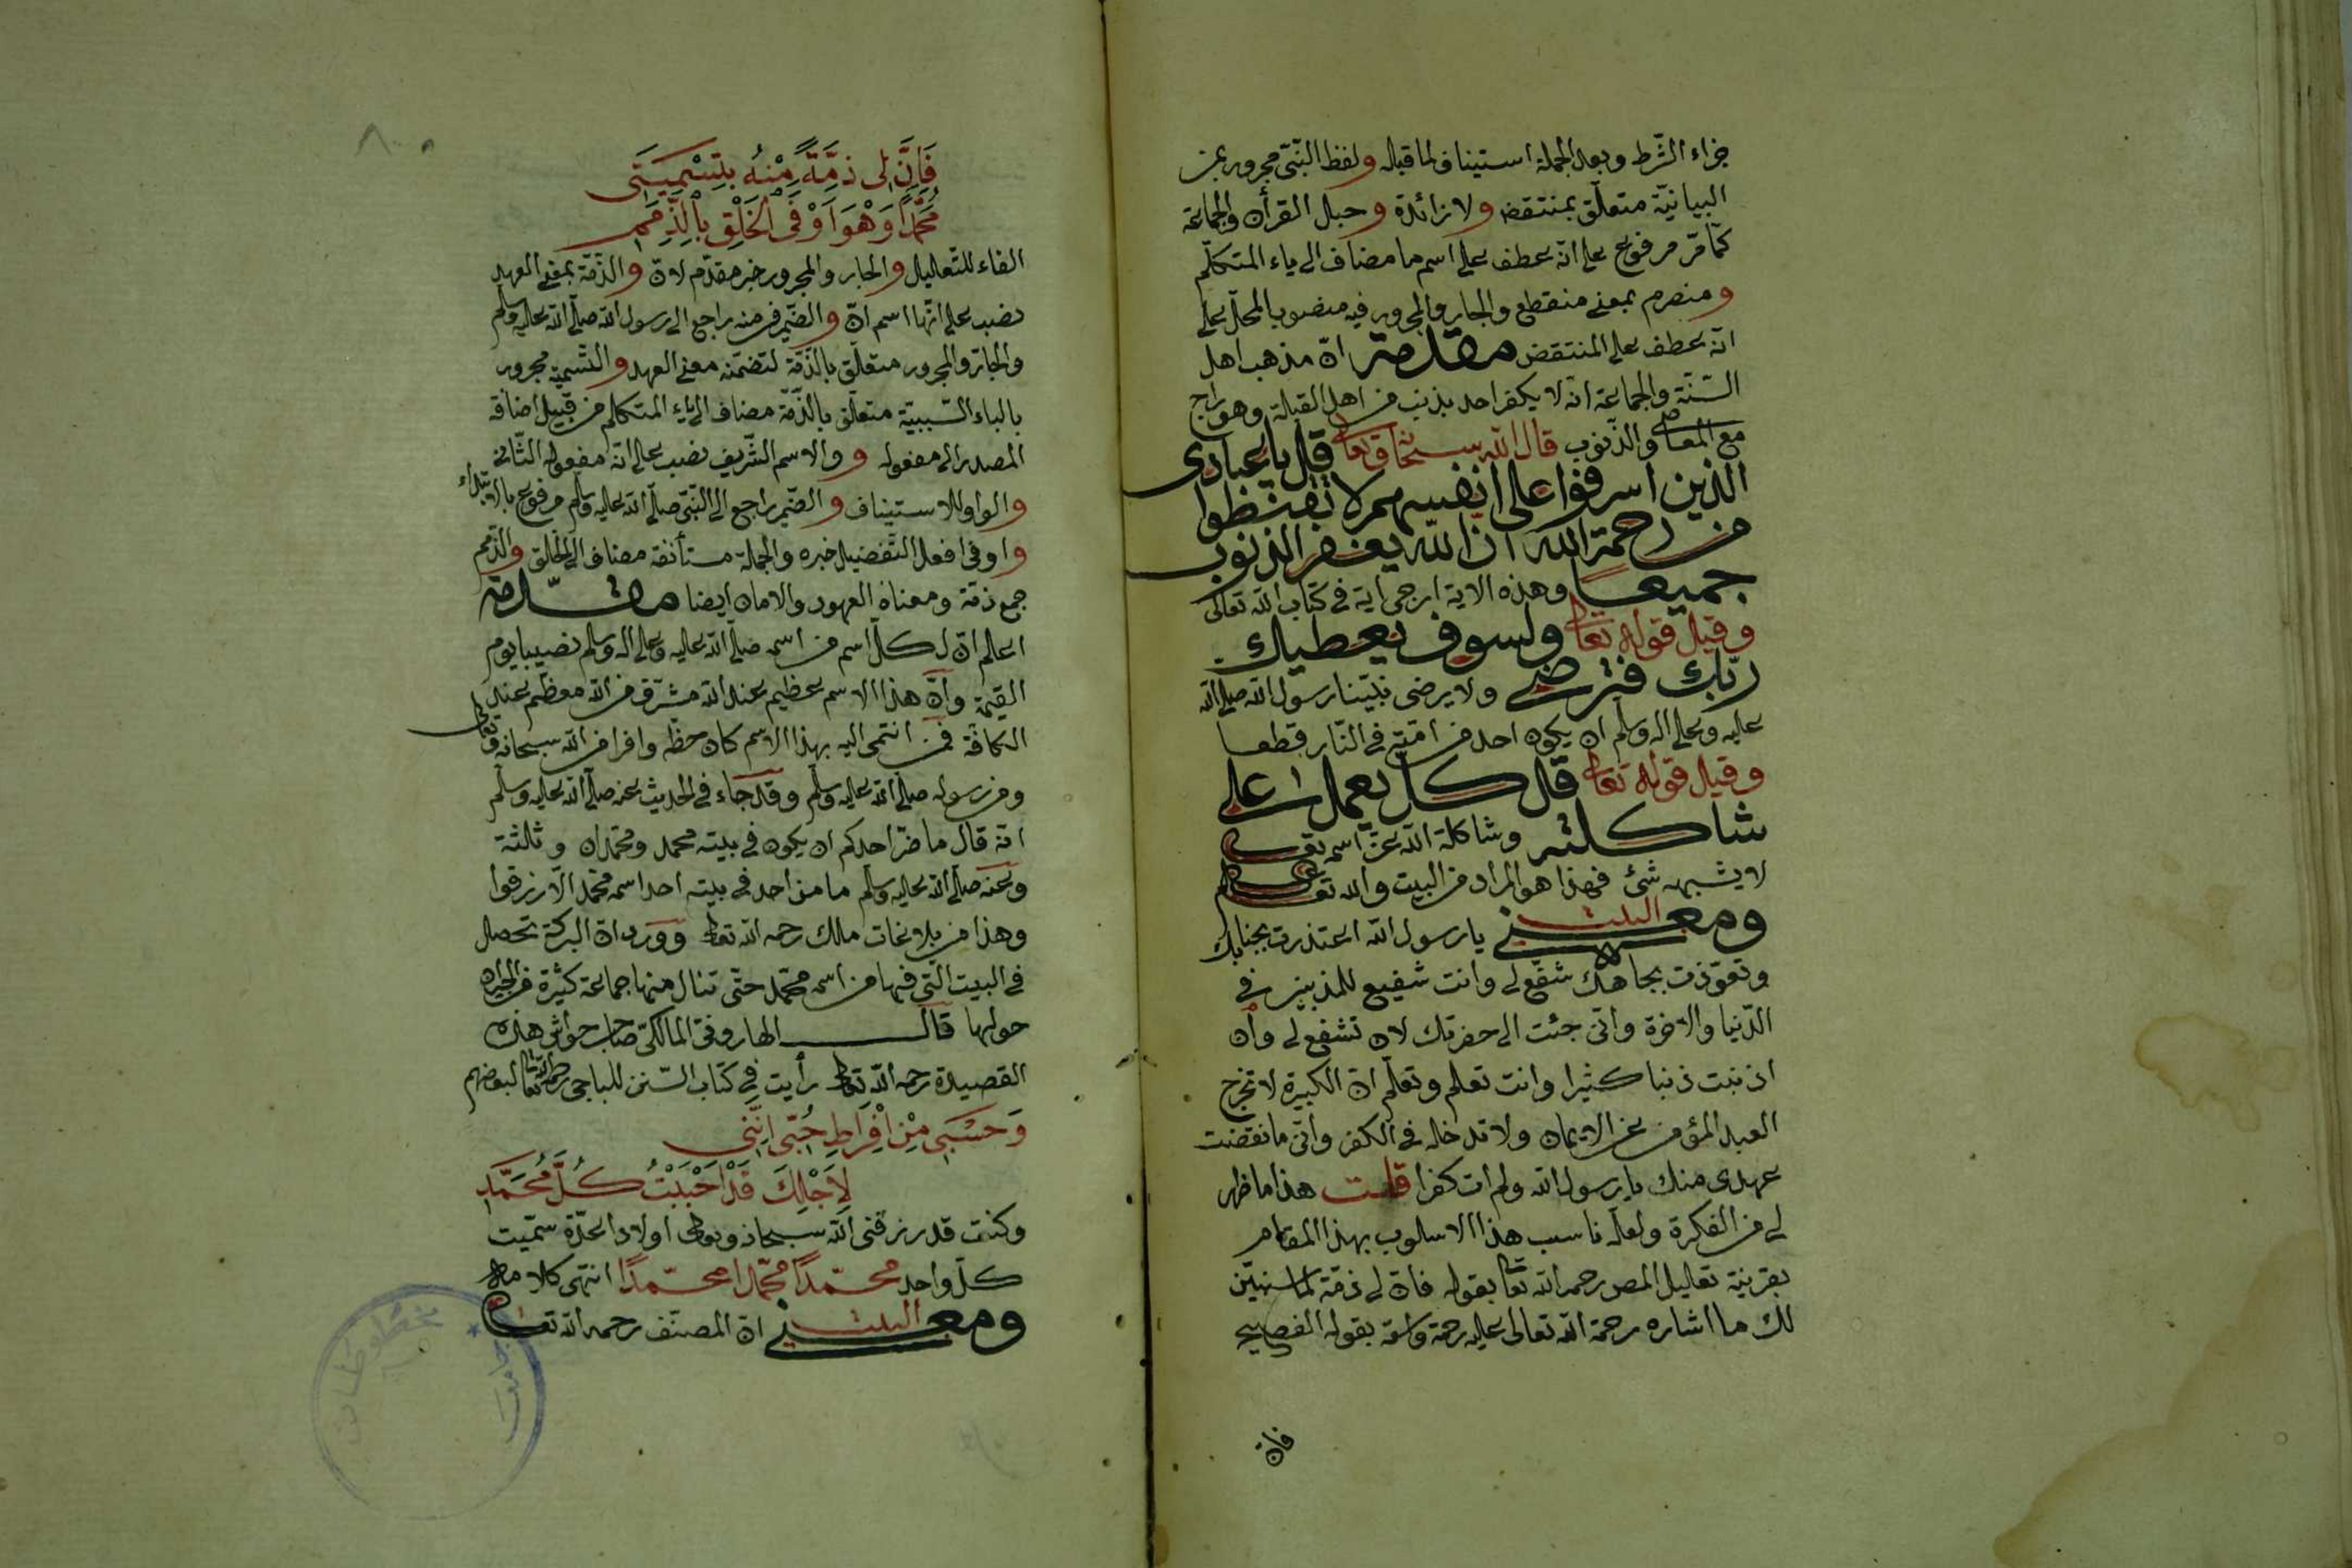 جزاء الشّرط وبعد الجملة استيناف لما قبله ولفظ النّبىّ مجرور بمن
البيانيّة متعلّق بمنتقض ولا زائدة وحبل القرأن والجماعة
كمّا مرّ مرفوع على انّه عطف على اسم ما مضاف الى ياء المتكلّم
ومنصرم بمعنى منقطع والجار والمجرور فيه منصوب المحلّ على
انّه عطف على المنتقض مقدمة انّ مذهب اهل
السّنّة والجماعة انّه لا يكفر احد بذنب من اهل القبلة وهو راج
مع المعاصى والذّنوب قال الله سبحانه وتعالى قل يا عبادى
الّذين اسرفوا على انفسهم لا تقنطوا
من رحمة الله انّ الله يغفر الذّنوب
جميعا وهذه الاية ارجى اية فى كتاب الله تعالى
وقيل قوله تعالى ولسوف يعطيك
ربّك فترضى ولا يرضى نبيّنا رسول الله صلى الله
عليه وعلى اله وسلّم ان يكون احد من امّته فى النّار قطعا
وقيل قوله تعالى قل كلّ يعمل على
شاكلته وشاكلة الله عزّ اسمه
لا يشبهه شئ فهذا هو المراد من البيت والله تعالى
ومعنى البيت يا رسول الله اعتذرت بجنابك
وتعوّذت بجاهك شفّع لى وانت شفيع للمذنبين فى
الدّنيا والاخرة وانّى جئت الى حضرتك لان تشفع لى وان
اذنبت ذنبا كثيرا وانت تعلم وتعلّم انّ الكبيرة لا تخرج
العبد المؤمن عن الايمان ولا تدخله فى الكفر وانّى ما نقضت
عهدى منك يا رسول الله ولم ات كفرا قلت هذا ما ظهر
لى من الفكرة ولعلّه ناسب هذا الاسلوب بهذا المقام
بقرينة تعليل المص رحمه الله تعا بقوله فانّ لى ذمّة لما سنبيّن
لك ما اشاره رحمة الله تعالى عليه رحمة واسعة بقوله الفصيح
فانّ
فَاِنَّ لِى ذِمَّةً مِنْهُ بِتَسْمِيَتِى
مُحَمَّدًا وَهْوَ اَوْفَى الْخَلْقِ بِالذِّمَمِ
الفاء للتّعليل والجار والمجرور خبر مقدّم لانّ والذّمّة بمعنى العهد
نصب على انّها اسم انّ والضّمير فى منه راجع الى رسول الله صلّى الله عليه وسلّم
والجارّ والمجرور متعلّق بالذّمّة لتضمّنه معنى العهد والتّسمية مجرور
بالباء السّببيّة متعلّق بالذّمّة مضاف الى ياء المتكلم من قبيل اضافة
المصدر الى مفعوله و والاسم الشّريف نصب على انّه مفعوله الثّانى
والواو للاستيناف والضّمير راجع الى النّبىّ صلّى الله عليه وسلّم مرفوع بالابتداء
واوفى افعل التّفضيل خبره والجملة مستأنفة مضاف الى الخلق والذّمم
جمع ذمّة ومعناه العهود والامان ايضا مقدّمة
اعلم انّ لكلّ اسم من اسمه صلّى الله عليه وعلى اله وسلم نصيبا يوم
القيمة وانّ هذا الاسم عظيم عند الله مشرّف من الله معظّم عند
الكافّة فمن انتمى اليه بهذا الاسم كان حظّه وافرا من الله سبحانه وتعالى
ومن رسوله صلّى الله عليه وسلّم وقد جاء فى الحديث عنه صلّى الله عليه وسلّم
انّه قال ما ضرّ احدكم ان يكون فى بيته محمد ومحمّدان وثلثة
وعنه صلّى الله عليه وسلّم ما من احد فى بيته احد اسمه محمّد الّا رزقوا
وهذا من بلاغات مالك رحمه الله تعالى وورد انّ البركة تحصل
فى البيت الّتى فيها من اسمه محمّد حتّى تنال منها جماعة كثيرة من الجيران
حولها قال الهاروفىّ المالكىّ صاحب حواشى هذه
القصيدة رحمه الله تعالى رأيت فى كتاب السّنن للباجى رحمه الله تعا لبعضهم
وَحَسْبِى مِنْ اِفْرَاطِ حُبِّى اِنَّنِى
لِاَجْلِكَ قَدْ اَحْبَبْتُ كُلَّ مُحَمَّدِ
وكنت قد رزقنى الله سبحانه وتعالى اولادا عدّة سمّيت
كلّ واحد محمّدًا محمّدا محمّدًا انتهى كلامه
ومعنى البيت انّ المصنّف رحمه الله تعالى